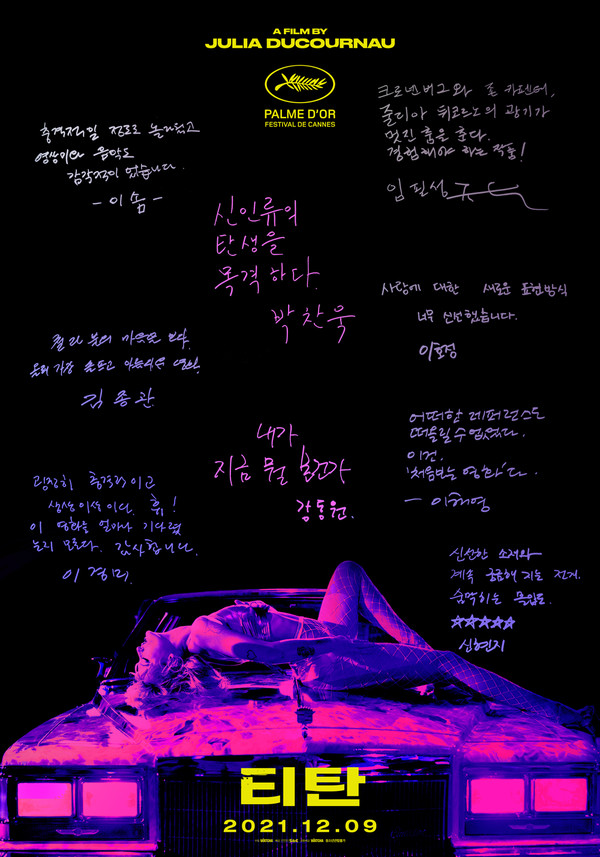 A FILM BY
JULIA DUCOURNAU
PALME D'OR
FESTIVAL DE CANNES
충격적일 정도로 놀라웠고
영상미와 음악도
감각적이었습니다.
- 이솜 -
크로넨버그와 존 카펜터,
줄리아 뒤쿠르노의 광기가
멋진 춤을 춘다.
경험해야 하는 작품!
임필성
신인류의
탄생을
목격하다.
박찬욱
사랑에 대한 새로운 표현방식
너무 신선했습니다.
이호정
김종관
어떠한 레퍼런스도
떠올릴 수 없었다.
이건.
'처음보는 영화'다.
- 이해영
내가
지금 뭘 본건가
강동원.
굉장히 충격적이고
생생이상이다. 휴!
이 영화를 얼마나 기다렸
는지 모른다. 감사합니다.
이경미
신선한 소재와
계속 궁금해지는 전개.
숨막히는 몰입도.
★★★★★
신현지
티탄
2021.12.09